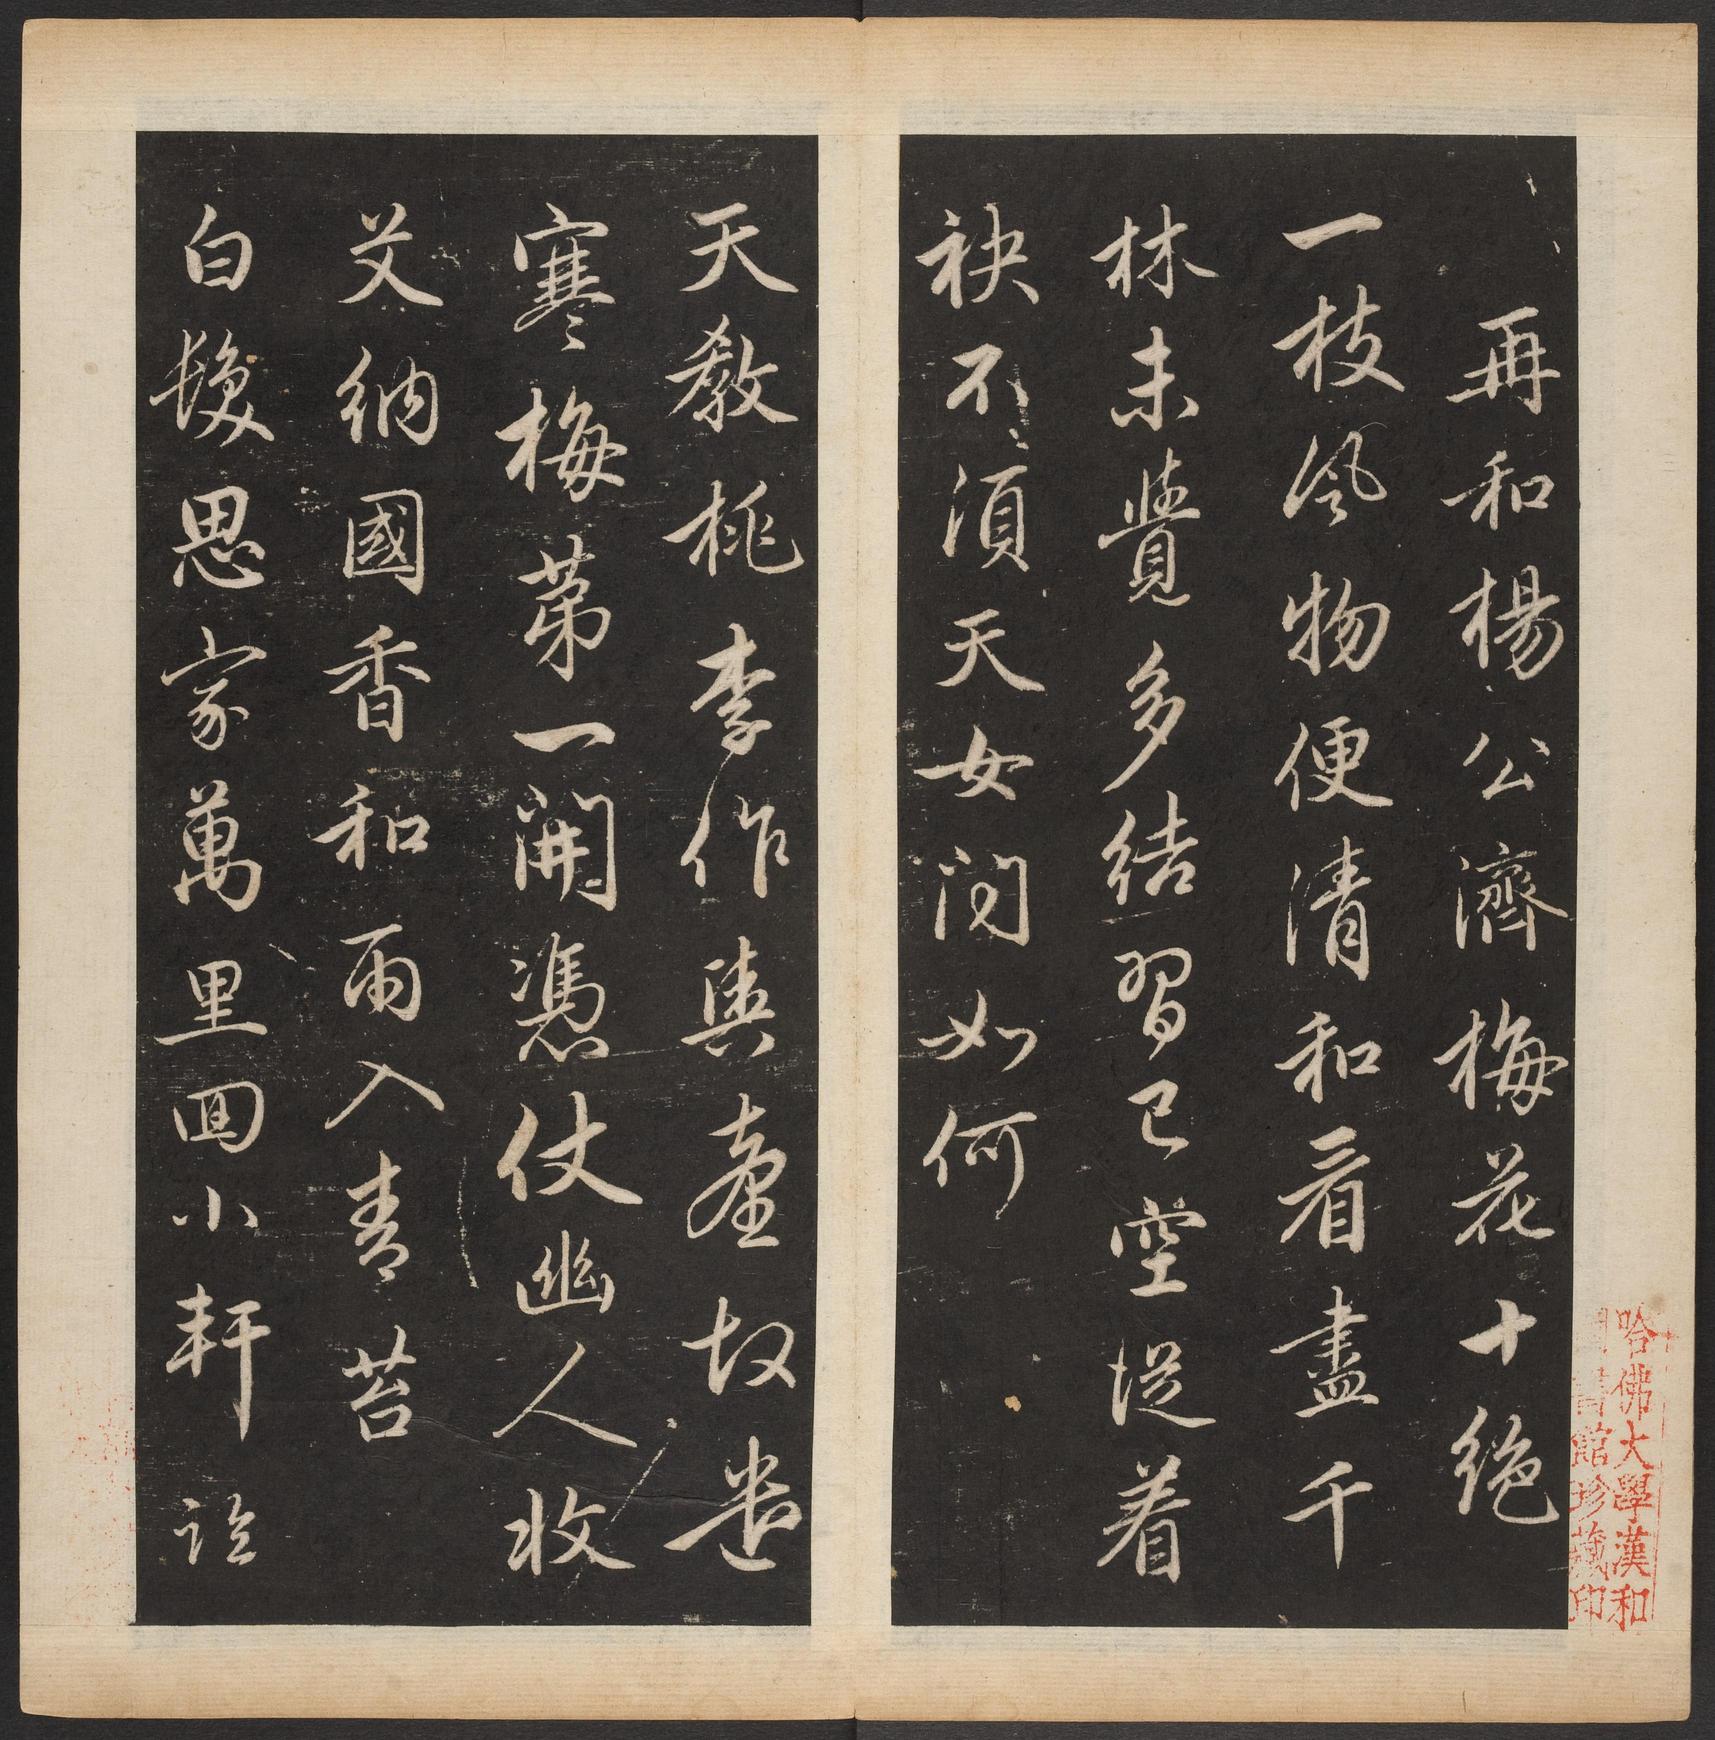 再和楊公濟梅花十絶
一枝風物便清和看盡千
林未覺多結習已空從着
袂不湏天女問如何
天教桃李作輿臺故遣
寒梅苐一開憑仗幽人收
艾納國香和雨入青苔
白髮思家萬里回小軒臨
哈佛大學漢和
圖書館珍藏印